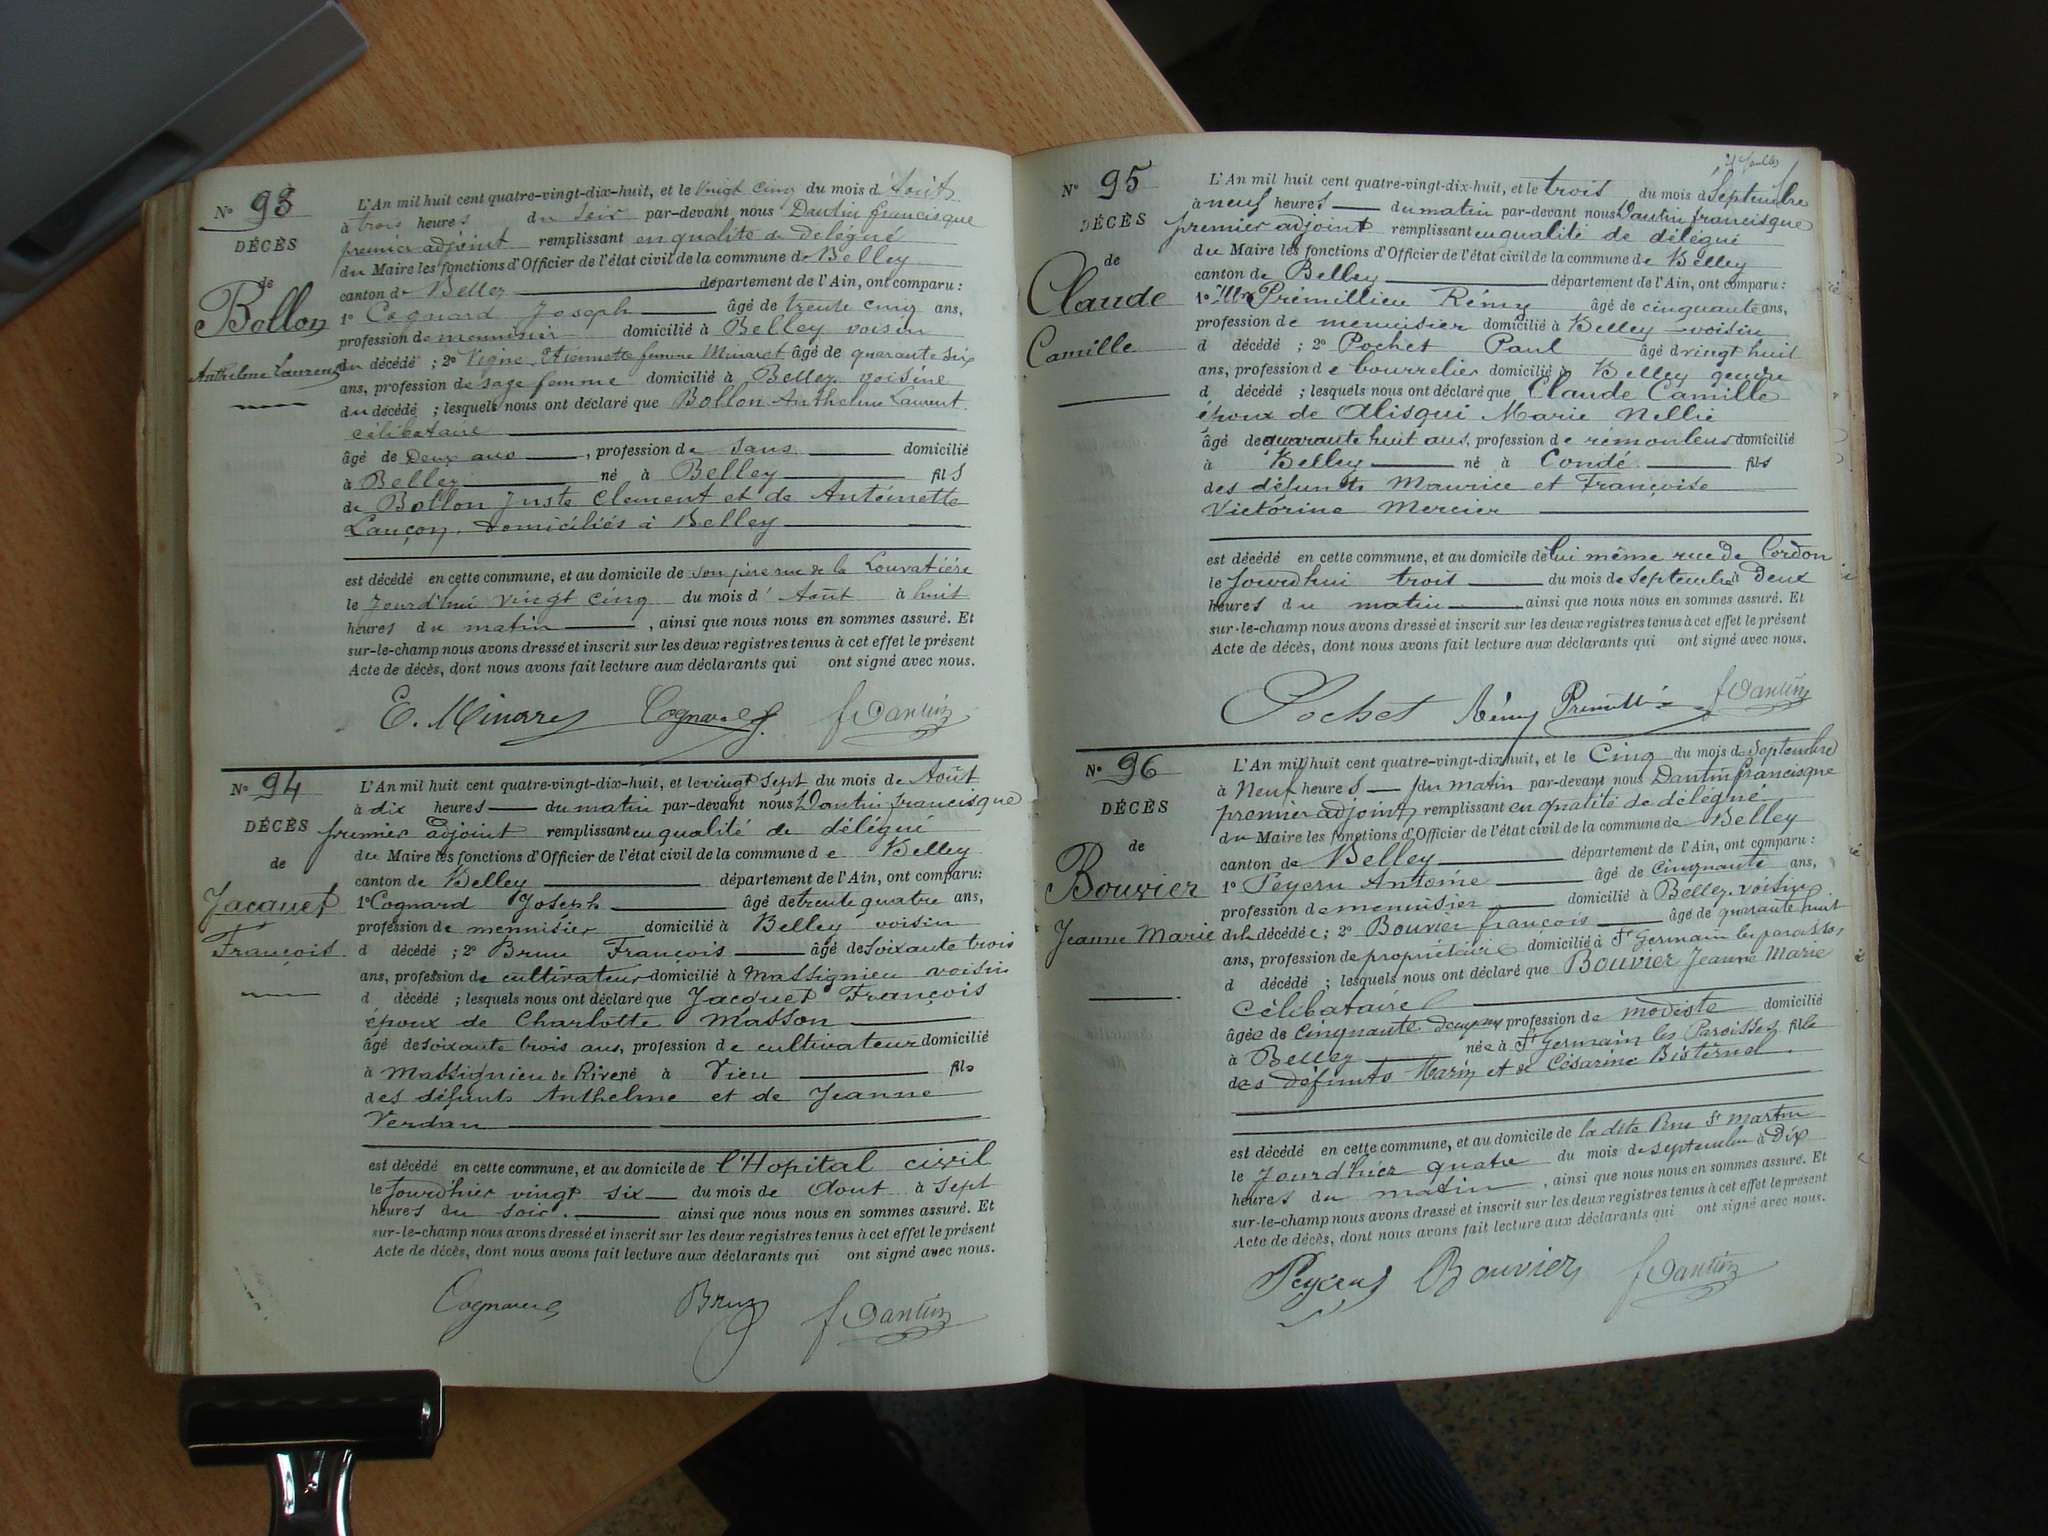 N° 93
DÉCÈS
de
Bollon
Anthelme Laurent
L'An mil huit cent quatre-vingt-dix-huit, et le vingt cinq du mois d'Août
à trois heures du soir par-devant nous Dantin francisque
premier adjoint remplissant en qualité de délégué
du Maire les fonctions d'Officier de l'état civil de la commune de Belley
canton de Belley département de l'Ain, ont comparu :
1° Cognard Joseph âgé de trente cinq ans,
profession de menuisier domicilié à Belley voisin
du décédé ; 2° Vigne Etiennette femme Minaret âgé de quarante six
ans, profession de sage femme domicilié à Belley voisine
du décédé ; lesquels nous ont déclaré que Bollon Anthelme Laurent
célibataire
âgé de Deux ans, profession de sans domicilié
à Belley né à Belley fils
de Bollon Juste Clement et de Antoinette
Lançon domiciliés à Belley
est décédé en cette commune, et au domicile de son père rue de la Louvatière
le Jourd'hui vingt cinq du mois d'Août à huit
heures du matin, ainsi que nous nous en sommes assuré. Et
sur-le-champ nous avons dressé et inscrit sur les deux registres tenus à cet effet le présent
Acte de décès, dont nous avons fait lecture aux déclarants qui ont signé avec nous.
E. Minaret Cognard J. f Dantin
N° 94
DÉCÈS
de
Jacquet
François
L'An mil huit cent quatre-vingt-dix-huit, et le vingt sept du mois de Août
à dix heures du matin par-devant nous Dantin francisque
premier adjoint remplissant en qualité de délégué
du Maire les fonctions d'Officier de l'état civil de la commune de Belley
canton de Belley département de l'Ain, ont comparu :
1° Cognard Joseph âgé de trente quatre ans,
profession de menuisier domicilié à Belley voisin
d décédé ; 2° Brun François âgé de soixante trois
ans, profession de cultivateur domicilié à Massignieu voisin
d décédé ; lesquels nous ont déclaré que Jacquet François
époux de Charlotte Masson
âgé de soixante trois ans, profession de cultivateur domicilié
à Massignieu de Rives né à Vieu fils
des défunts Anthelme et de Jeanne
Verdan
est décédé en cette commune, et au domicile de l'Hopital civil
le Jourd'hier vingt six du mois de Aout à sept
heures du soir. ainsi que nous nous en sommes assuré. Et
sur-le-champ nous avons dressé et inscrit sur les deux registres tenus à cet effet le présent
Acte de décès, dont nous avons fait lecture aux déclarants qui ont signé avec nous.
Cognard Brun f Dantin
N° 95
DÉCÈS
de
Claude
Camille
L'An mil huit cent quatre-vingt-dix-huit, et le trois du mois de Septembre
à neuf heures du matin par-devant nous Dantin francisque
premier adjoint remplissant en qualité de délégué
du Maire les fonctions d'Officier de l'état civil de la commune de Belley
canton de Belley département de l'Ain, ont comparu :
1° Prémillieu Rémy âgé de cinquante ans,
profession de menuisier domicilié à Belley voisin
d décédé ; 2° Pochet Paul âgé d vingt huit
ans, profession de bourrelier domicilié à Belley gendre
d décédé ; lesquels nous ont déclaré que Claude Camille
époux de Alisqui Marie Nellie
âgé de quarante huit ans, profession de rémouleur domicilié
à Belley né à Condé fils
des défunts Maurice et Françoise
Victorine Mercier
est décédé en cette commune, et au domicile de lui même rue de Cordon
le Jourd'hui trois du mois de septembre à Deux
heures du matin ainsi que nous nous en sommes assuré. Et
sur-le-champ nous avons dressé et inscrit sur les deux registres tenus à cet effet le présent
Acte de décès, dont nous avons fait lecture aux déclarants qui ont signé avec nous.
Pochet Rémy f Dantin
N° 96
DÉCÈS
de
Bouvier
Jeanne Marie
L'An mil huit cent quatre-vingt-dix-huit, et le Cinq du mois de Septembre
à Neuf heures du matin par-devant nous Dantin francisque
premier adjoint remplissant en qualité de délégué
du Maire les fonctions d'Officier de l'état civil de la commune de Belley
canton de Belley département de l'Ain, ont comparu :
1° Peyern Antoine âgé de Cinquante ans,
profession de menuisier domicilié à Belley voisin
de la décédée ; 2° Bouvier françois âgé de quarante huit
ans, profession de propriétaire domicilié à St Germain les paroisses
d décédé ; lesquels nous ont déclaré que Bouvier Jeanne Marie
Célibataire
âgée de Cinquante deux ans profession de modiste domicilié
à Belley née à St Germain les Paroisses fille
des défunts Marin et de Césarine Bisternel
est décédé en cette commune, et au domicile de la dite Rue St Martin
le Jourd'hier quatre du mois de septembre à Dix
heures du matin, ainsi que nous nous en sommes assuré. Et
sur-le-champ nous avons dressé et inscrit sur les deux registres tenus à cet effet le présent
Acte de décès, dont nous avons fait lecture aux déclarants qui ont signé avec nous.
Peyern Bouvier f Dantin